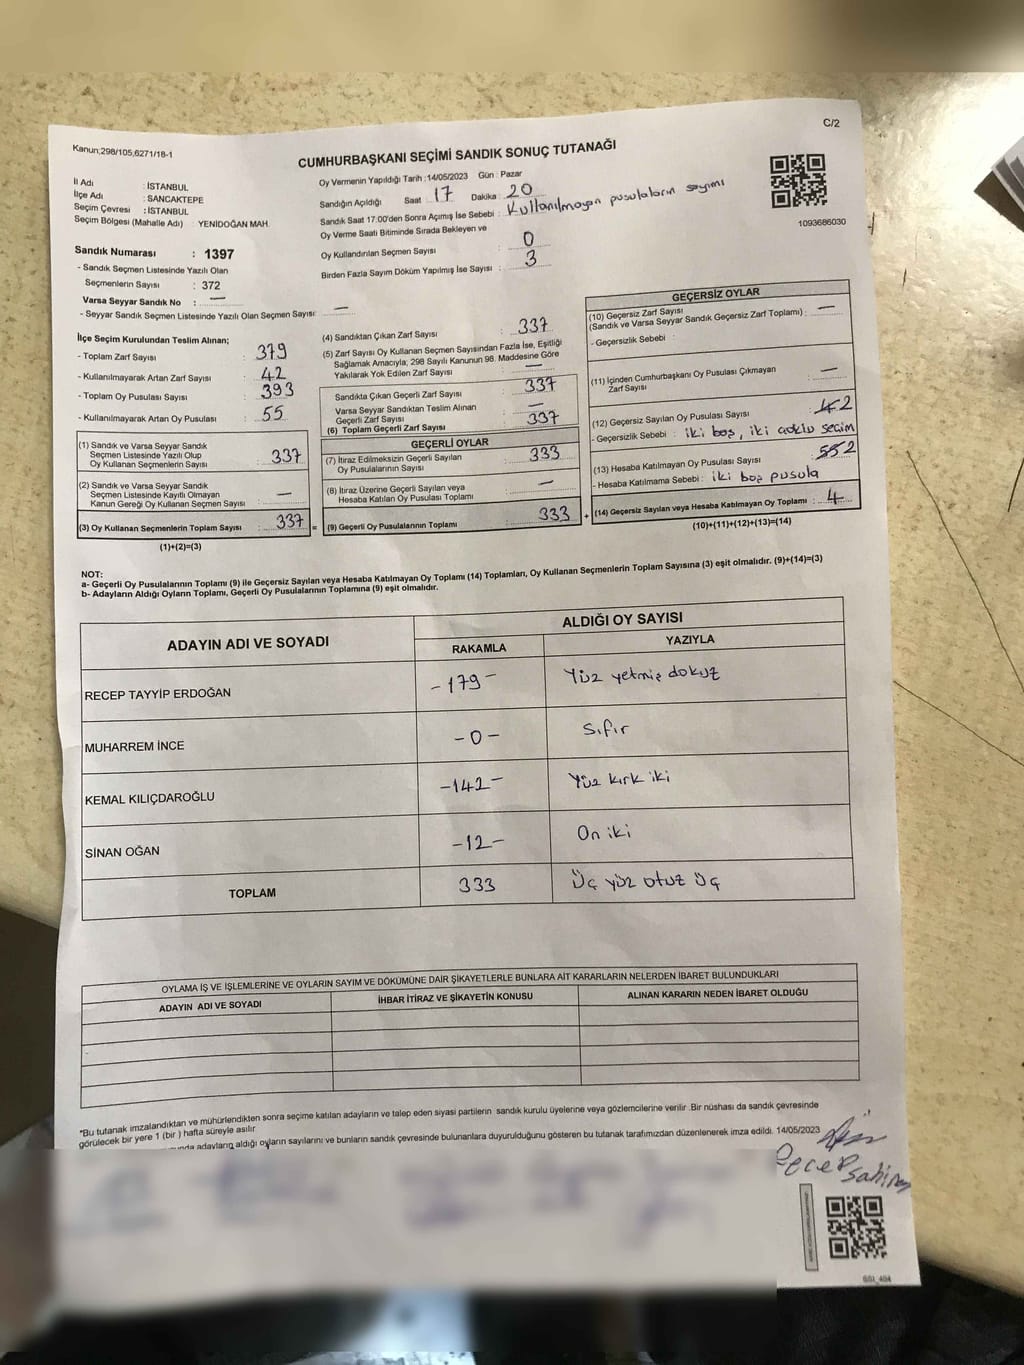 C/2
Kanun;298/105,6271/18-1
CUMHURBAŞKANI SEÇİMİ SANDIK SONUÇ TUTANAĞI
İl Adı : İSTANBUL
İlçe Adı : SANCAKTEPE
Seçim Çevresi : İSTANBUL
Seçim Bölgesi (Mahalle Adı) : YENİDOĞAN MAH.
Oy Vermenin Yapıldığı Tarih :14/05/2023 Gün : Pazar
Sandığın Açıldığı Saat : 17 Dakika : 20
Sandık Saat 17:00'den Sonra Açımış İse Sebebi : Kullanılmayan pusulaların sayımı
Oy Verme Saati Bitiminde Sırada Bekleyen ve
Oy Kullandırılan Seçmen Sayısı : 0
Birden Fazla Sayım Döküm Yapılmış İse Sayısı : 3
1093686030
Sandık Numarası : 1397
- Sandık Seçmen Listesinde Yazılı Olan
Seçmenlerin Sayısı : 372
Varsa Seyyar Sandık No : —
- Seyyar Sandık Seçmen Listesinde Yazılı Olan Seçmen Sayısı: —
İlçe Seçim Kurulundan Teslim Alınan;
- Toplam Zarf Sayısı : 379
- Kullanılmayarak Artan Zarf Sayısı : 42
- Toplam Oy Pusulası Sayısı : 393
- Kullanılmayarak Artan Oy Pusulası : 55
(1) Sandık ve Varsa Seyyar Sandık
Seçmen Listesinde Yazılı Olup
Oy Kullanan Seçmenlerin Sayısı : 337
(2) Sandık ve Varsa Seyyar Sandık
Seçmen Listesinde Kayıtlı Olmayan
Kanun Gereği Oy Kullanan Seçmen Sayısı : —
(3) Oy Kullanan Seçmenlerin Toplam Sayısı : 337 =
(1)+(2)=(3)
(4) Sandıktan Çıkan Zarf Sayısı : 337
(5) Zarf Sayısı Oy Kullanan Seçmen Sayısından Fazla İse, Eşitliği
Sağlamak Amacıyla; 298 Sayılı Kanunun 98. Maddesine Göre
Yakılarak Yok Edilen Zarf Sayısı : —
Sandıkta Çıkan Geçerli Zarf Sayısı : 337
Varsa Seyyar Sandıktan Teslim Alınan
Geçerli Zarf Sayısı : —
(6) Toplam Geçerli Zarf Sayısı : 337
GEÇERLİ OYLAR
(7) İtiraz Edilmeksizin Geçerli Sayılan
Oy Pusulalarının Sayısı : 333
(8) İtiraz Üzerine Geçerli Sayılan veya
Hesaba Katılan Oy Pusulası Toplamı : —
(9) Geçerli Oy Pusulalarının Toplamı : 333 +
GEÇERSİZ OYLAR
(10) Geçersiz Zarf Sayısı
(Sandık ve Varsa Seyyar Sandık Geçersiz Zarf Toplamı) : —
- Geçersizlik Sebebi :
(11) İçinden Cumhurbaşkanı Oy Pusulası Çıkmayan
Zarf Sayısı : —
(12) Geçersiz Sayılan Oy Pusulası Sayısı : 2
- Geçersizlik Sebebi : iki boş, iki çoklu seçim
(13) Hesaba Katılmayan Oy Pusulası Sayısı : 2
- Hesaba Katılmama Sebebi : iki boş pusula
(14) Geçersiz Sayılan veya Hesaba Katılmayan Oy Toplamı : 4
(10)+(11)+(12)+(13)=(14)
NOT:
a- Geçerli Oy Pusulalarının Toplamı (9) ile Geçersiz Sayılan veya Hesaba Katılmayan Oy Toplamı (14) Toplamları, Oy Kullanan Seçmenlerin Toplam Sayısına (3) eşit olmalıdır. (9)+(14)=(3)
b- Adayların Aldığı Oyların Toplamı, Geçerli Oy Pusulalarının Toplamına (9) eşit olmalıdır.
ADAYIN ADI VE SOYADI
ALDIĞI OY SAYISI
RAKAMLA YAZIYLA
RECEP TAYYİP ERDOĞAN -179- Yüz yetmiş dokuz
MUHARREM İNCE -0- Sıfır
KEMAL KILIÇDAROĞLU -142- Yüz kırk iki
SİNAN OĞAN -12- On iki
TOPLAM 333 Üç yüz otuz üç
OYLAMA İŞ VE İŞLEMLERİNE VE OYLARIN SAYIM VE DÖKÜMÜNE DAİR ŞİKAYETLERLE BUNLARA AİT KARARLARIN NELERDEN İBARET BULUNDUKLARI
ADAYIN ADI VE SOYADI İHBAR İTİRAZ VE ŞİKAYETİN KONUSU ALINAN KARARIN NEDEN İBARET OLDUĞU
*Bu tutanak imzalandıktan ve mühürlendikten sonra seçime katılan adayların ve talep eden siyasi partilerin sandık kurulu üyelerine veya gözlemcilerine verilir .Bir nüshası da sandık çevresinde
görülecek bir yere 1 (bir ) hafta süreyle asılır
adayların aldığı oyların sayılarını ve bunların sandık çevresinde bulunanlara duyurulduğunu gösteren bu tutanak tarafımızdan düzenlenerek imza edildi. 14/05/2023
Recep
Şahin